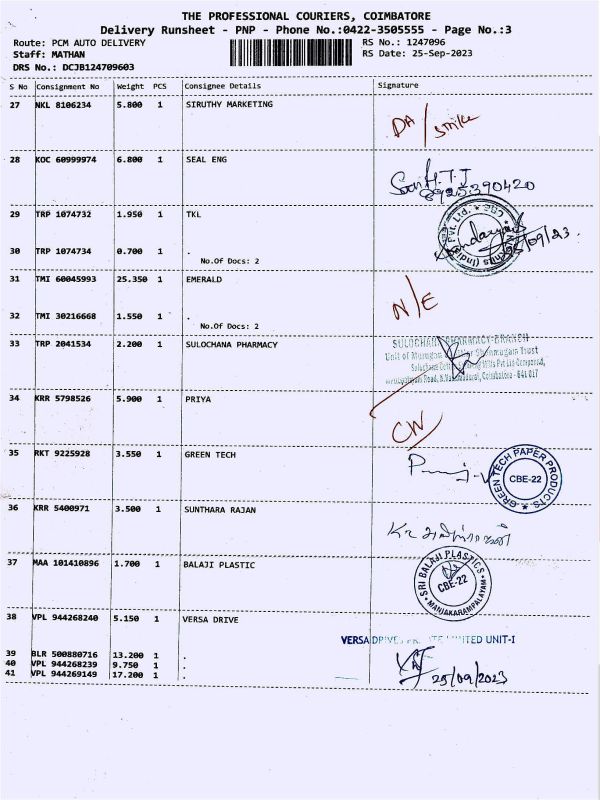 THE PROFESSIONAL COURIERS, COIMBATORE
Delivery Runsheet - PNP - Phone No.:0422-3505555 - Page No.:3
Route: PCM AUTO DELIVERY RS No.: 1247096
Staff: MATHAN RS Date: 25-Sep-2023
DRS No.: DCJB124709603
S No Consignment No Weight PCS Consignee Details Signature
27 NKL 8106234 5.800 1 SIRUTHY MARKETING
DA/strike
28 KOC 60999974 6.800 1 SEAL ENG
8925390420
29 TRP 1074732 1.950 1 TKL
Pvt. Ltd.
30 TRP 1074734 0.700 1 .
No.Of Docs: 2
31 TMI 60045993 25.350 1 EMERALD
N/E
32 TMI 30216668 1.550 1 .
No.Of Docs: 2
33 TRP 2041534 2.200 1 SULOCHANA PHARMACY
SULOCHANA PHARMACY-BRANCH
Trust
Coimbatore - 641 017
34 KRR 5798526 5.900 1 PRIYA
CW
35 RKT 9225928 3.550 1 GREEN TECH
GREEN TECH PAPER PRODUCTS
CBE-22
36 KRR 5400971 3.500 1 SUNTHARA RAJAN
37 MAA 101410896 1.700 1 BALAJI PLASTIC
SRI BALAJI PLASTICS
CBE-22
MANJAKARAMPALAYAM
38 VPL 944268240 5.150 1 VERSA DRIVE
VERSA DRIVES LIMITED UNIT-I
39 BLR 500880716 13.200 1 .
40 VPL 944268239 9.750 1 .
41 VPL 944269149 17.200 1 .
25/09/2023